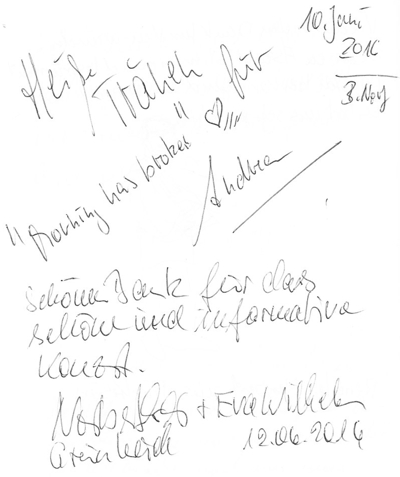 10. Juni
2016
Heiße
Tränen für
"Morning has broken"
Andrea
schönen Dank für das
schöne und informative
Konzert.
+ Eva Wilhelm
12.06.2016